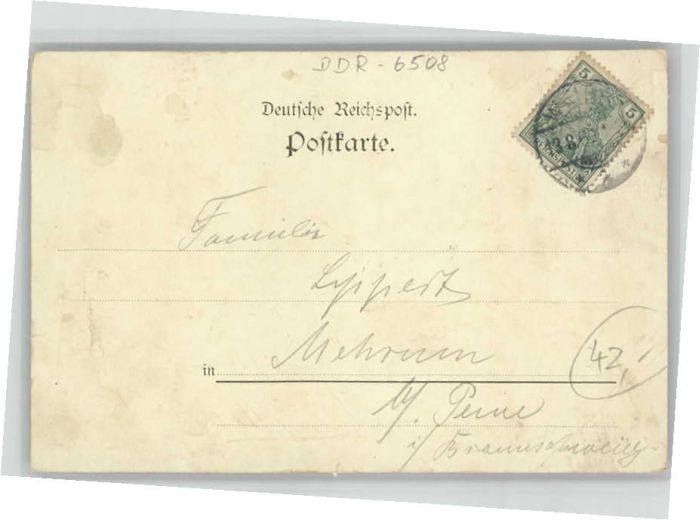 DDR - 6508
5 5
Deutsche Reichspost.
Postkarte.
Familie
Lippert
in Mehrum
b/ Peine
i/ Braunschweig
42,